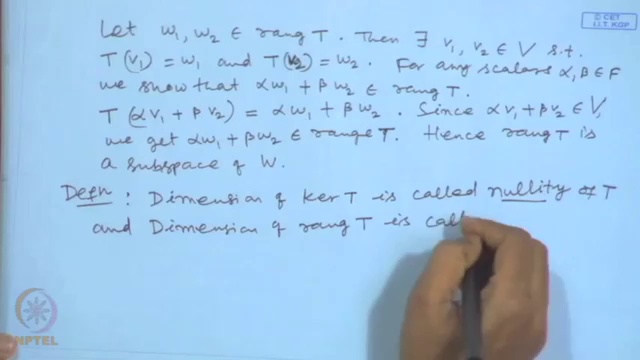 © CET
I.I.T. KGP
Let w₁, w₂ ∈ rang T. Then ∃ v₁, v₂ ∈ V s.t.
T(v₁) = w₁ and T(v₂) = w₂. For any scalars α, β ∈ F
we show that αw₁ + βw₂ ∈ rang T.
T(αv₁ + βv₂) = αw₁ + βw₂. Since αv₁ + βv₂ ∈ V,
we get αw₁ + βw₂ ∈ range T. Hence rang T is
a subspace of W.
Defn: Dimension of ker T is called nullity of T
and Dimension of rang T is call
NPTEL